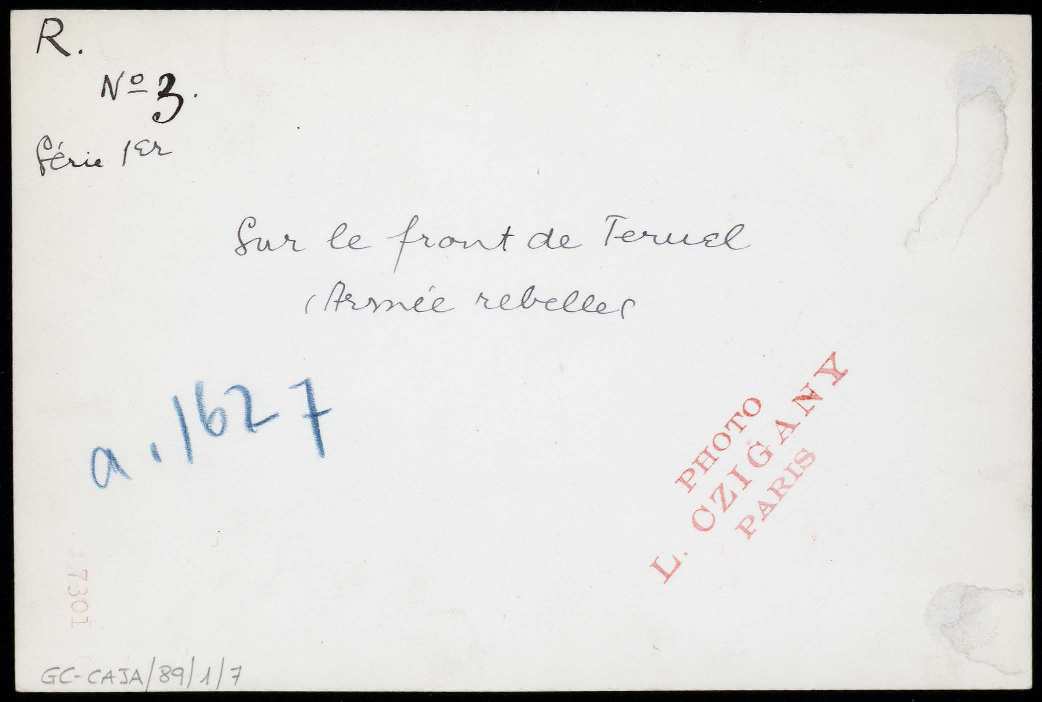 R.
Nº 3.
Série 1er
Sur le front de Teruel
(Armée rebelle)
a. 1627
PHOTO
L. CZIGANY
PARIS
7301
GC-CAJA/89/1/7